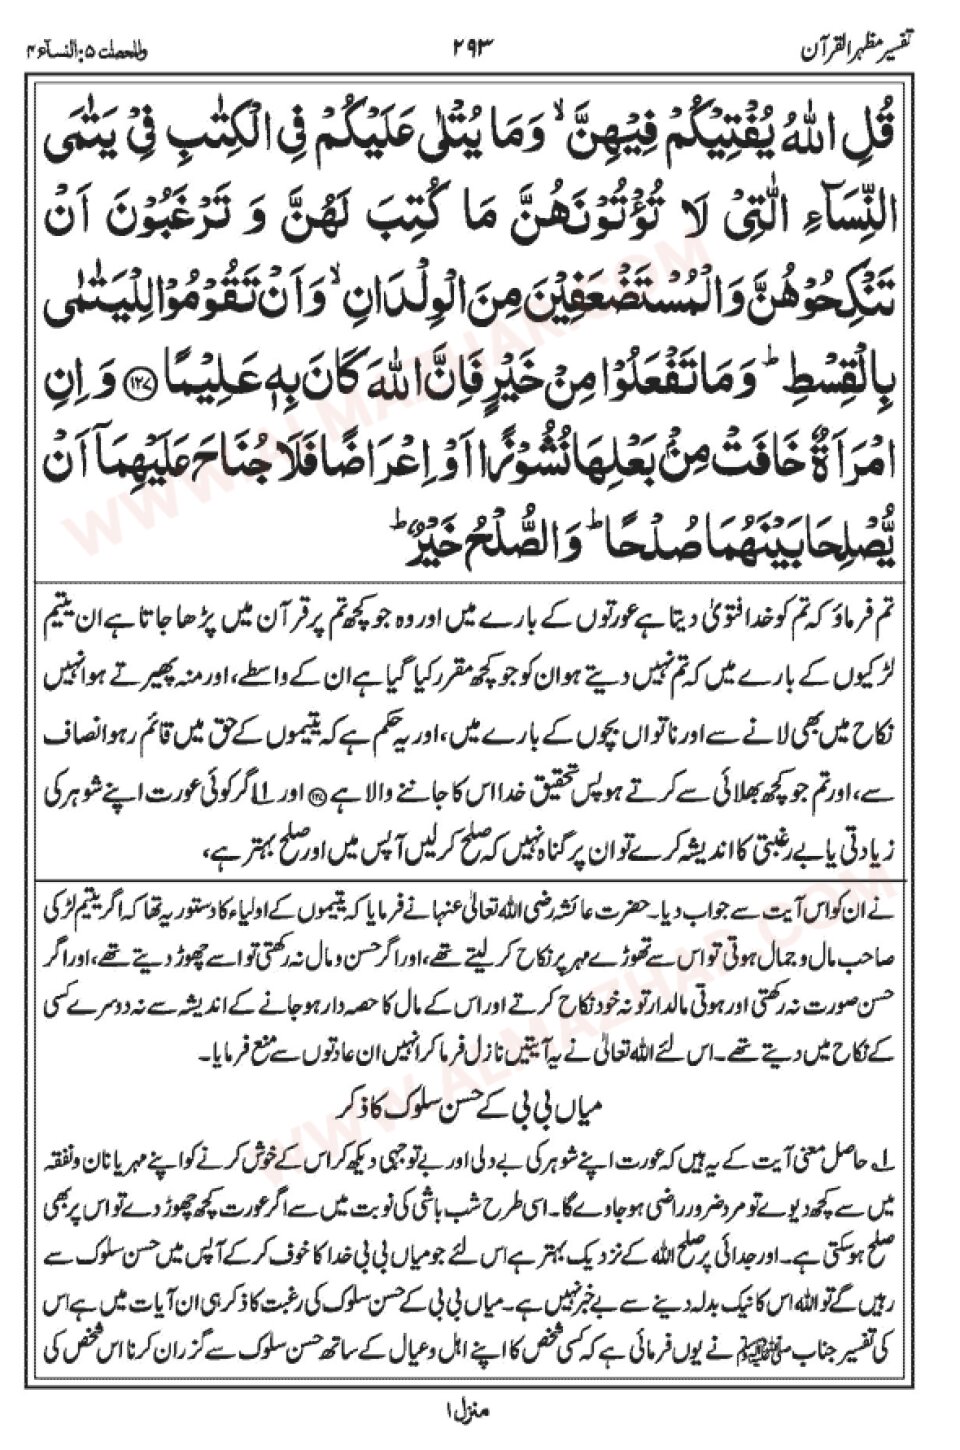 تفسیر مظہر القرآن ۲۹۳ والمحصنٰت ۵: النسآء ۴
قُلِ اللّٰهُ یُفْتِیْكُمْ فِیْهِنَّ ۙ وَمَا یُتْلٰى عَلَیْكُمْ فِی الْكِتٰبِ فِیْ یَتٰمَى
النِّسَآءِ الّٰتِیْ لَا تُؤْتُوْنَهُنَّ مَا كُتِبَ لَهُنَّ وَ تَرْغَبُوْنَ اَنْ
تَنْكِحُوْهُنَّ وَالْمُسْتَضْعَفِیْنَ مِنَ الْوِلْدَانِ ۙ وَاَنْ تَقُوْمُوْا لِلْیَتٰمٰى
بِالْقِسْطِ ؕ وَمَا تَفْعَلُوْا مِنْ خَیْرٍ فَاِنَّ اللّٰهَ كَانَ بِهٖ عَلِیْمًا ﴿۱۲۷﴾ وَاِنِ
امْرَاَةٌ خَافَتْ مِنْۢ بَعْلِهَا نُشُوْزًا اَوْ اِعْرَاضًا فَلَا جُنَاحَ عَلَیْهِمَاۤ اَنْ
یُّصْلِحَا بَیْنَهُمَا صُلْحًا ؕ وَالصُّلْحُ خَیْرٌ ؕ
تم فرماؤ کہ تم کو خدا فتویٰ دیتا ہے عورتوں کے بارے میں اور وہ جو کچھ تم پر قرآن میں پڑھا جاتا ہے ان یتیم
لڑکیوں کے بارے میں کہ تم نہیں دیتے ہو ان کو جو کچھ مقرر کیا گیا ہے ان کے واسطے، اور منہ پھیرتے ہو انہیں
نکاح میں بھی لانے سے اور ناتواں بچوں کے بارے میں، اور یہ حکم ہے کہ یتیموں کے حق میں قائم رہو انصاف
سے، اور تم جو کچھ بھلائی سے کرتے ہو پس تحقیق خدا اس کا جاننے والا ہے ﴿۱۲۷﴾ اور ۱؎ اگر کوئی عورت اپنے شوہر کی
زیادتی یا بے رغبتی کا اندیشہ کرے تو ان پر گناہ نہیں کہ صلح کر لیں آپس میں اور صلح بہتر ہے،
نے ان کو اس آیت سے جواب دیا۔ حضرت عائشہ رضی اللہ تعالیٰ عنہا نے فرمایا کہ یتیموں کے اولیاء کا دستور یہ تھا کہ اگر یتیم لڑکی
صاحب مال و جمال ہوتی تو اس سے تھوڑے مہر پر نکاح کر لیتے تھے، اور اگر حسن و مال نہ رکھتی تو اسے چھوڑ دیتے تھے، اور اگر
حسن صورت نہ رکھتی اور ہوتی مالدار تو نہ خود نکاح کرتے اور اس کے مال کا حصہ دار ہو جانے کے اندیشہ سے نہ دوسرے کسی
کے نکاح میں دیتے تھے۔ اس لئے اللہ تعالیٰ نے یہ آیتیں نازل فرما کر انہیں ان عادتوں سے منع فرمایا۔
میاں بی بی کے حسن سلوک کا ذکر
۱؎ حاصل معنی آیت کے یہ ہیں کہ عورت اپنے شوہر کی بے دلی اور بے توجہی دیکھ کر اس کے خوش کرنے کو اپنے مہر یا نان و نفقہ
میں سے کچھ دیوے تو مرد ضرور راضی ہو جاوے گا۔ اسی طرح شب باشی کی نوبت میں سے اگر عورت کچھ چھوڑ دے تو اس پر بھی
صلح ہو سکتی ہے۔ اور جدائی پر صلح اللہ کے نزدیک بہتر ہے اس لئے جو میاں بی بی خدا کا خوف کر کے آپس میں حسن سلوک سے
رہیں گے تو اللہ اس کا نیک بدلہ دینے سے بے خبر نہیں ہے۔ میاں بی بی کے حسن سلوک کی رغبت کا ذکر ہی ان آیات میں ہے اس
کی تفسیر جناب ﷺ نے یوں فرمائی ہے کہ کسی شخص کا اپنے اہل و عیال کے ساتھ حسن سلوک سے گزران کرنا اس شخص کی
منزل ۱
WWW.ALMAZHAR.COM
WWW.ALMAZHAR.COM